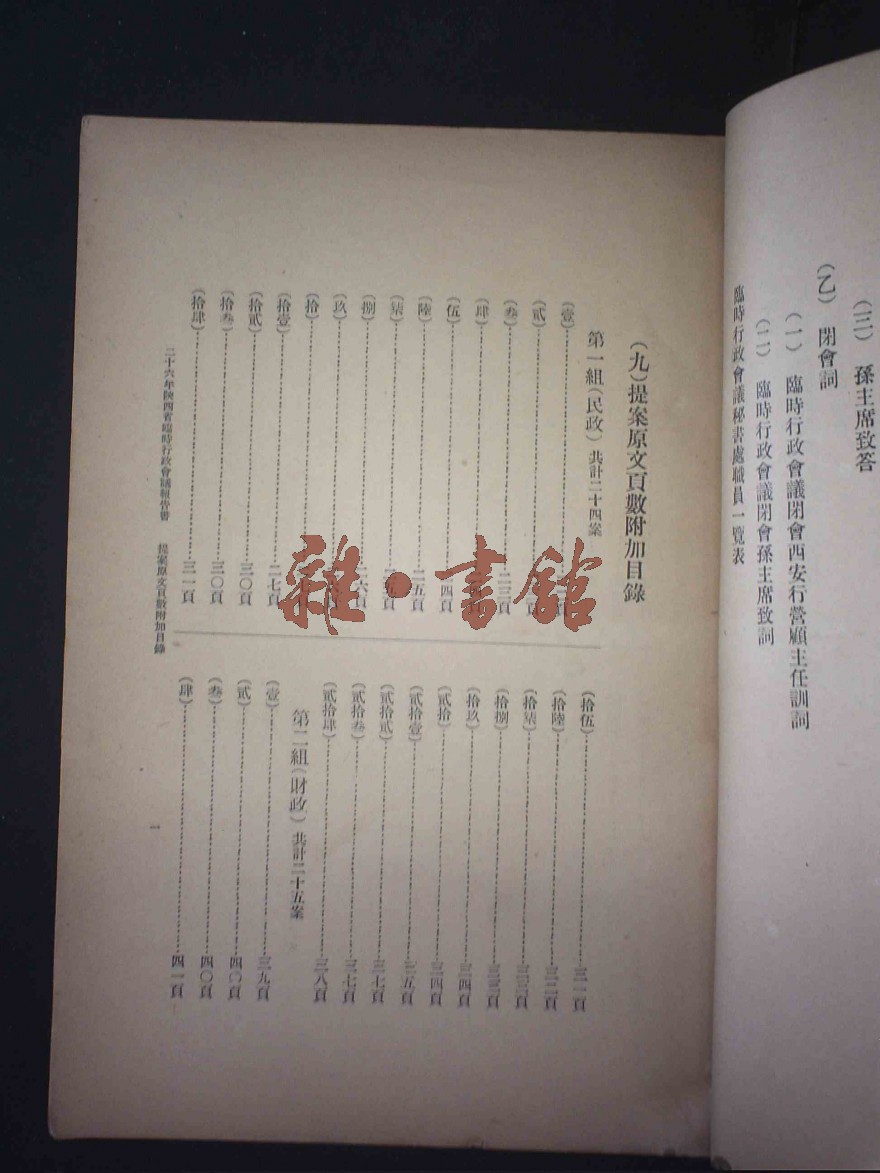 （三）孫主席致答
（乙）閉會詞
（一）臨時行政會議閉會西安行營顧主任訓詞
（二）臨時行政會議閉會孫主席致詞
臨時行政會議秘書處職員一覽表
（九）提案原文頁數附加目錄
第一組（民政）共計二十四案
（壹）
（貳）
（叁）二三頁
（肆）
（伍）四頁
（陸）二五頁
（柒）
（捌）二六頁
（玖）頁
（拾）
（拾壹）二七頁
（拾貳）三〇頁
（拾叁）三〇頁
（拾肆）三一頁
（拾伍）三一頁
（拾陸）三二頁
（拾柒）三三頁
（拾捌）三三頁
（拾玖）三四頁
（貳拾）三四頁
（貳拾壹）三五頁
（貳拾貳）三七頁
（貳拾叁）三七頁
（貳拾肆）三八頁
第二組（財政）共計二十五案
（壹）三九頁
（貳）四〇頁
（叁）四〇頁
（肆）四一頁
二十六年陝西省臨時行政會議報告書　提案原文頁數附加目錄
一
雜·書館